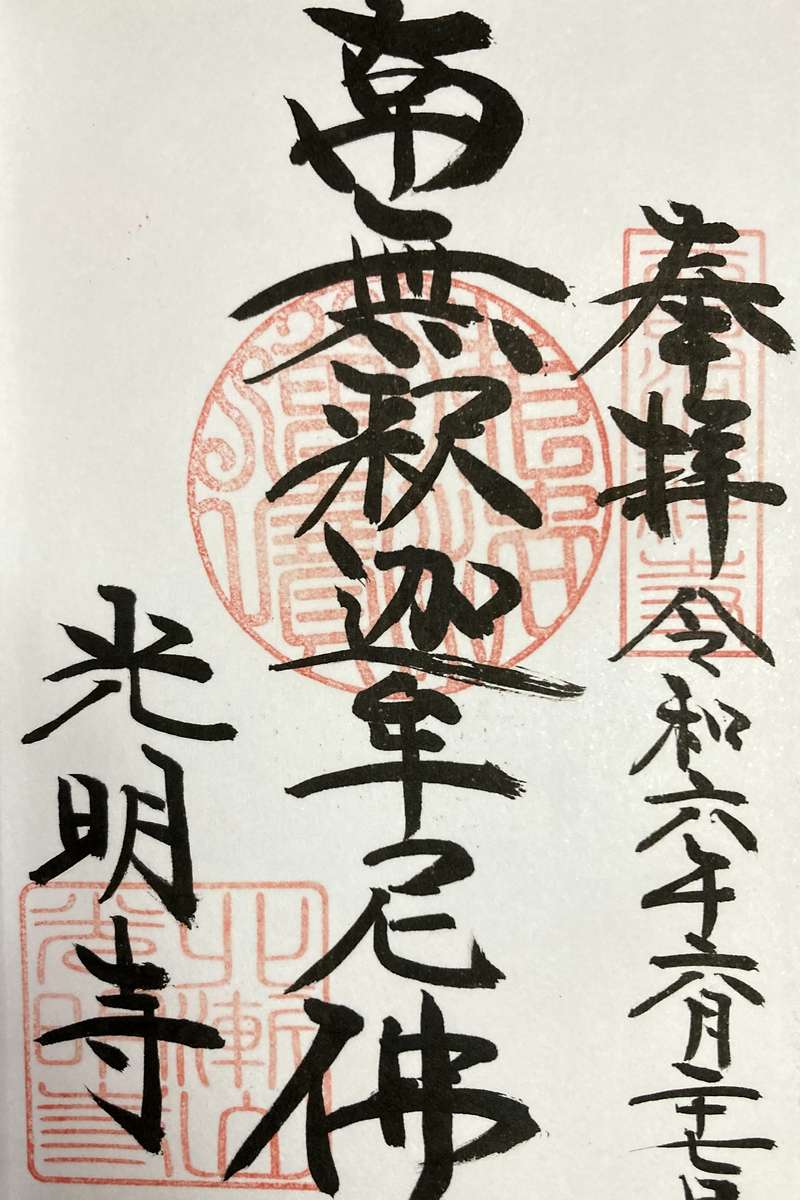 奉拝 令和六年六月二十七日
南無釈迦牟尼佛
光明寺